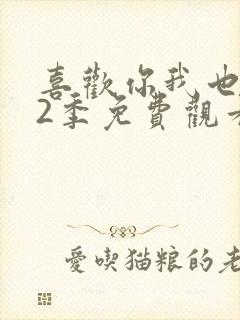 喜歡你我也
2季免費觀
愛喫猫粮的老